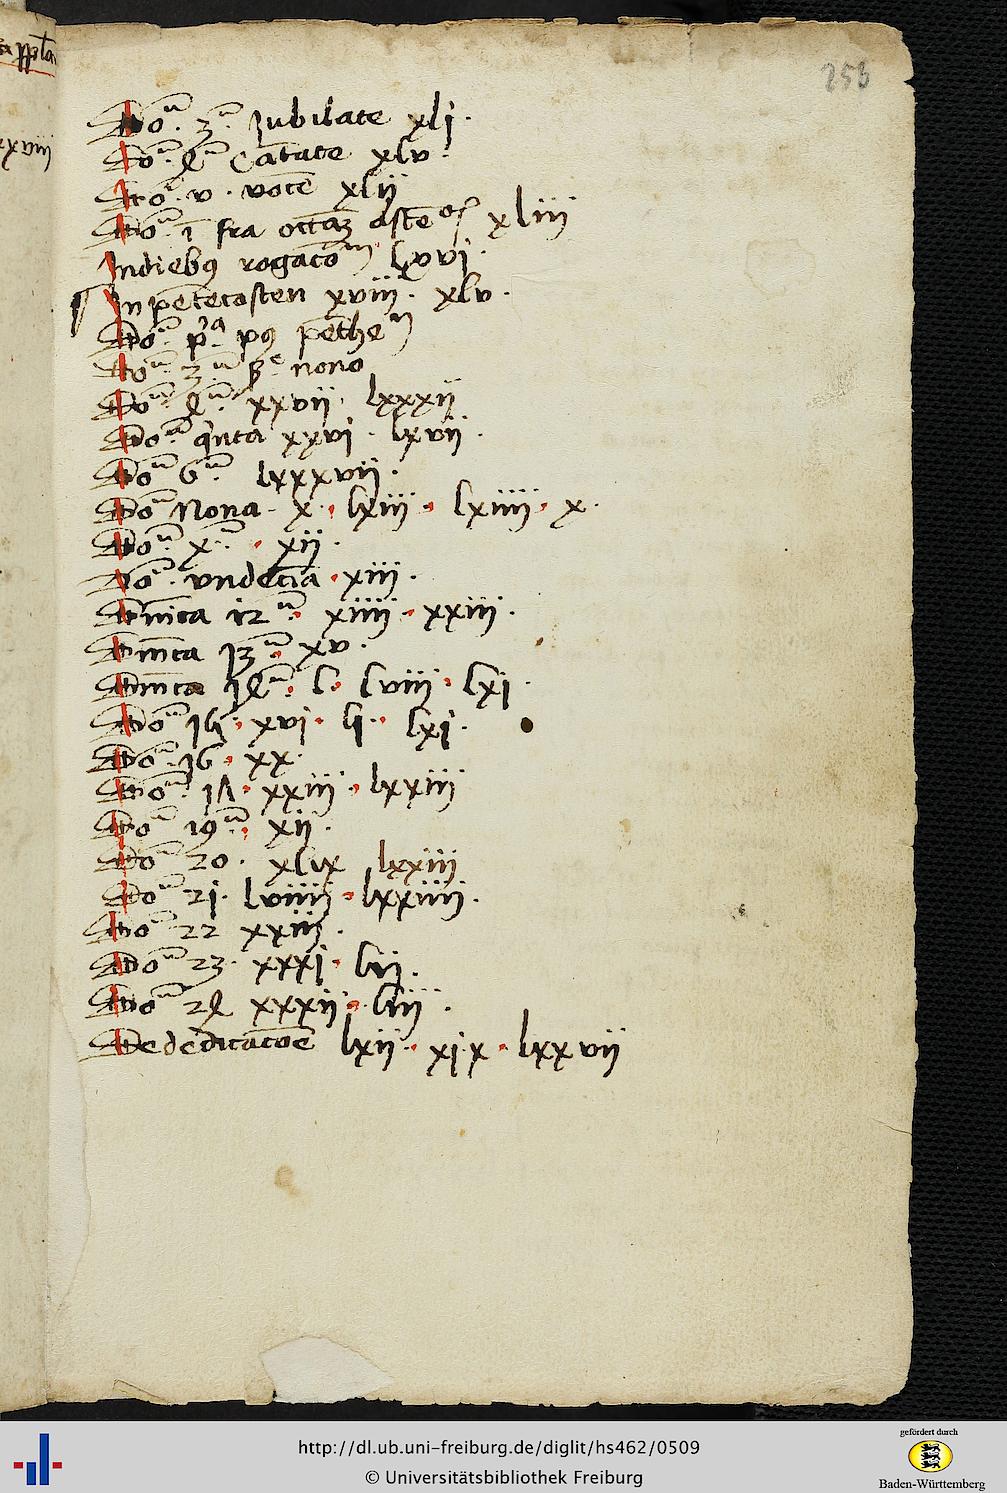 253
Doᵃ. 3ᵃ. Jubilate xlj.
Doᵃ. 4ᵃ Cātate xlv.
Doᵃ. v. vocē xlij
Doᵃ ī fra octaꝫ Asc̄e xliiij
Jndiebꝯ rogac̄o lxvj.
Jn pētecosten xviij. xlv.
Doᵃ. pᵃ. pꝯ pēthe
Doᵃ 3ᵃ nono
Doᵃ 4ᵃ xxvij. lxxxij
Doᵃ qͥnta xxvj. lxvij.
Doᵃ 6ᵃ lxxxvij.
Doᵃ Nona. x. lxiij. lxiiij. x.
Doᵃ xᵃ. xij.
Doᵃ. vndecīa. xiij.
Dnīca 12ᵃ. xiiij. xxiij.
Dnīca 13ᵃ. xv.
Dnīca 14ᵃ. l. lviij. lxj.
Doᵃ 15. xvj. lj. lxj.
Doᵃ. 16. xx.
Doᵃ. 17. xxiij. lxxiij
Doᵃ 19ᵃ. xij.
Doᵃ 20. xlix lxxiij
Doᵃ 21. lviiij. lxxiiij.
Doᵃ 22 xxiij.
Doᵃ 23. xxxj. lij.
Doᵃ 24 xxxij. liij.
De dedicac̄oe lxij. xj. x. lxxvij
http://dl.ub.uni-freiburg.de/diglit/hs462/0509
© Universitätsbibliothek Freiburg
gefördert durch
Baden-Württemberg